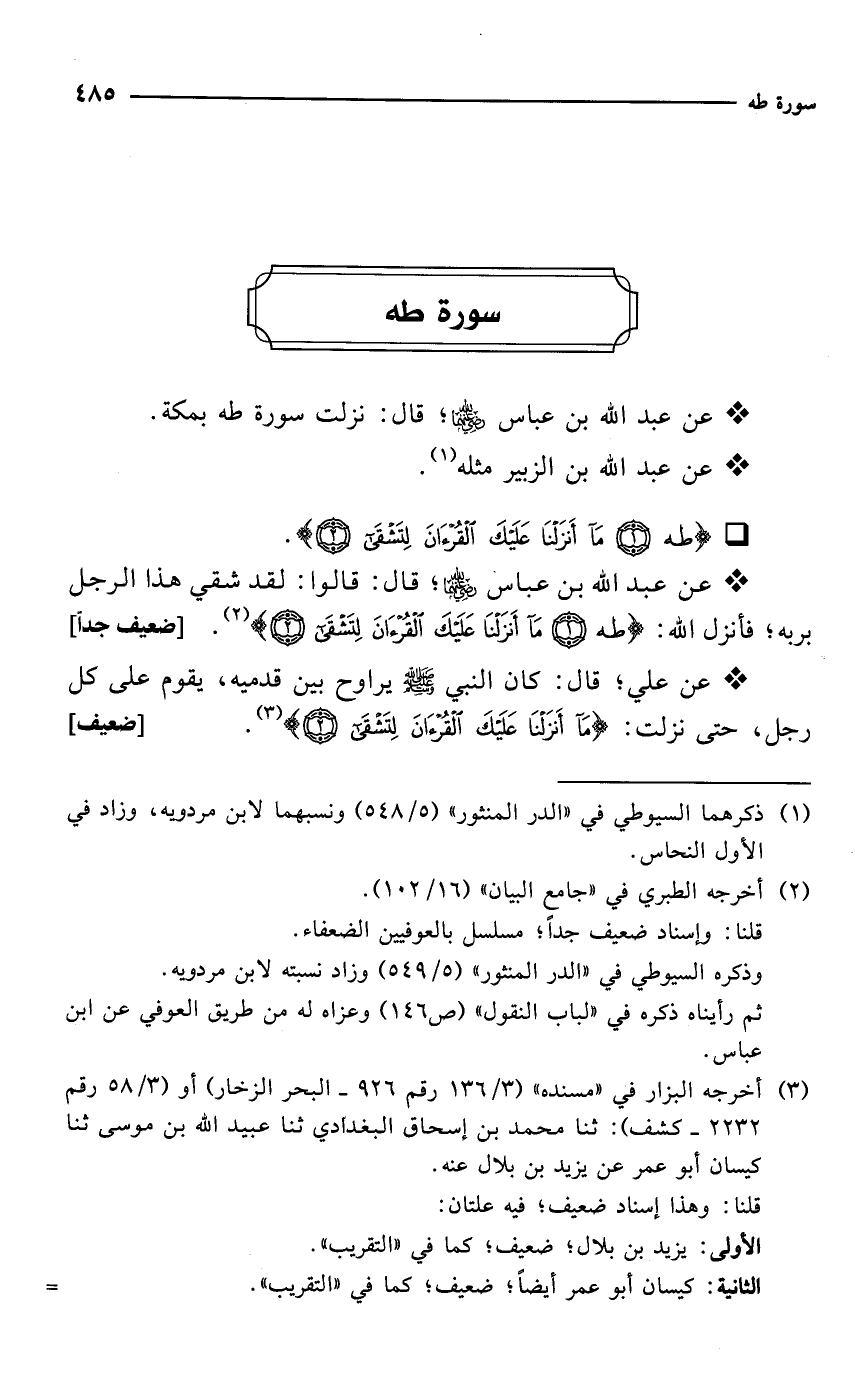 سورة طه ٤٨٥
سورة طه
❖ عن عبد الله بن عباس رضي الله عنهما؛ قال: نزلت سورة طه بمكة.
❖ عن عبد الله بن الزبير مثله(١).
❑ ﴿طه ١ مَآ أَنزَلْنَا عَلَيْكَ ٱلْقُرْءَانَ لِتَشْقَىٰٓ ٢﴾.
❖ عن عبد الله بن عباس رضي الله عنهما؛ قال: قالوا: لقد شقي هذا الرجل
بربه؛ فأنزل الله: ﴿طه ١ مَآ أَنزَلْنَا عَلَيْكَ ٱلْقُرْءَانَ لِتَشْقَىٰٓ ٢﴾(٢). [ضعيف جداً]
❖ عن علي؛ قال: كان النبي ﷺ يراوح بين قدميه، يقوم على كل
رجل، حتى نزلت: ﴿مَآ أَنزَلْنَا عَلَيْكَ ٱلْقُرْءَانَ لِتَشْقَىٰٓ ٢﴾(٣). [ضعيف]
(١) ذكرهما السيوطي في «الدر المنثور» (٥٤٨/٥) ونسبهما لابن مردويه، وزاد في
الأول النحاس.
(٢) أخرجه الطبري في «جامع البيان» (١٠٢/١٦).
قلنا: وإسناد ضعيف جداً؛ مسلسل بالعوفيين الضعفاء.
وذكره السيوطي في «الدر المنثور» (٥٤٩/٥) وزاد نسبته لابن مردويه.
ثم رأيناه ذكره في «لباب النقول» (ص١٤٦) وعزاه له من طريق العوفي عن ابن
عباس.
(٣) أخرجه البزار في «مسنده» (١٣٦/٣ رقم ٩٢٦ ـ البحر الزخار) أو (٥٨/٣ رقم
٢٢٣٢ ـ كشف): ثنا محمد بن إسحاق البغدادي ثنا عبيد الله بن موسى ثنا
كيسان أبو عمر عن يزيد بن بلال عنه.
قلنا: وهذا إسناد ضعيف؛ فيه علتان:
الأولى: يزيد بن بلال؛ ضعيف؛ كما في «التقريب».
الثانية: كيسان أبو عمر أيضاً؛ ضعيف؛ كما في «التقريب». =